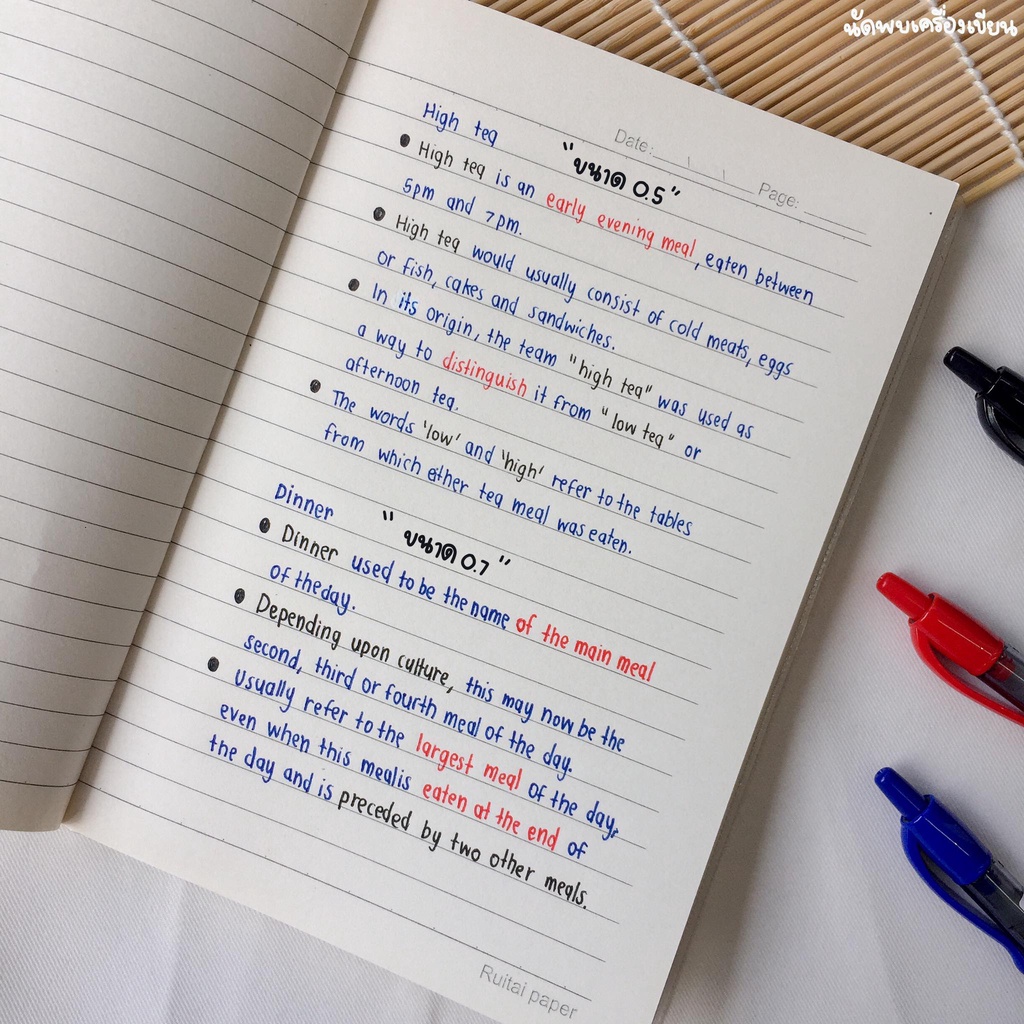 นัดพบเครื่องเขียน
Date:
Page:
High tea
"ขนาด 0.5"
• High tea is an early evening meal, eaten between
5pm and 7pm.
• High tea would usually consist of cold meats, eggs
or fish, cakes and sandwiches.
• In its origin, the team "high tea" was used as
a way to distinguish it from "low tea" or
afternoon tea.
• The words 'low' and 'high' refer to the tables
from which either tea meal was eaten.
Dinner
"ขนาด 0.7"
• Dinner used to be the name of the main meal
of the day.
• Depending upon culture, this may now be the
second, third or fourth meal of the day.
• Usually refer to the largest meal of the day,
even when this meal is eaten at the end of
the day and is preceded by two other meals.
Ruitai paper